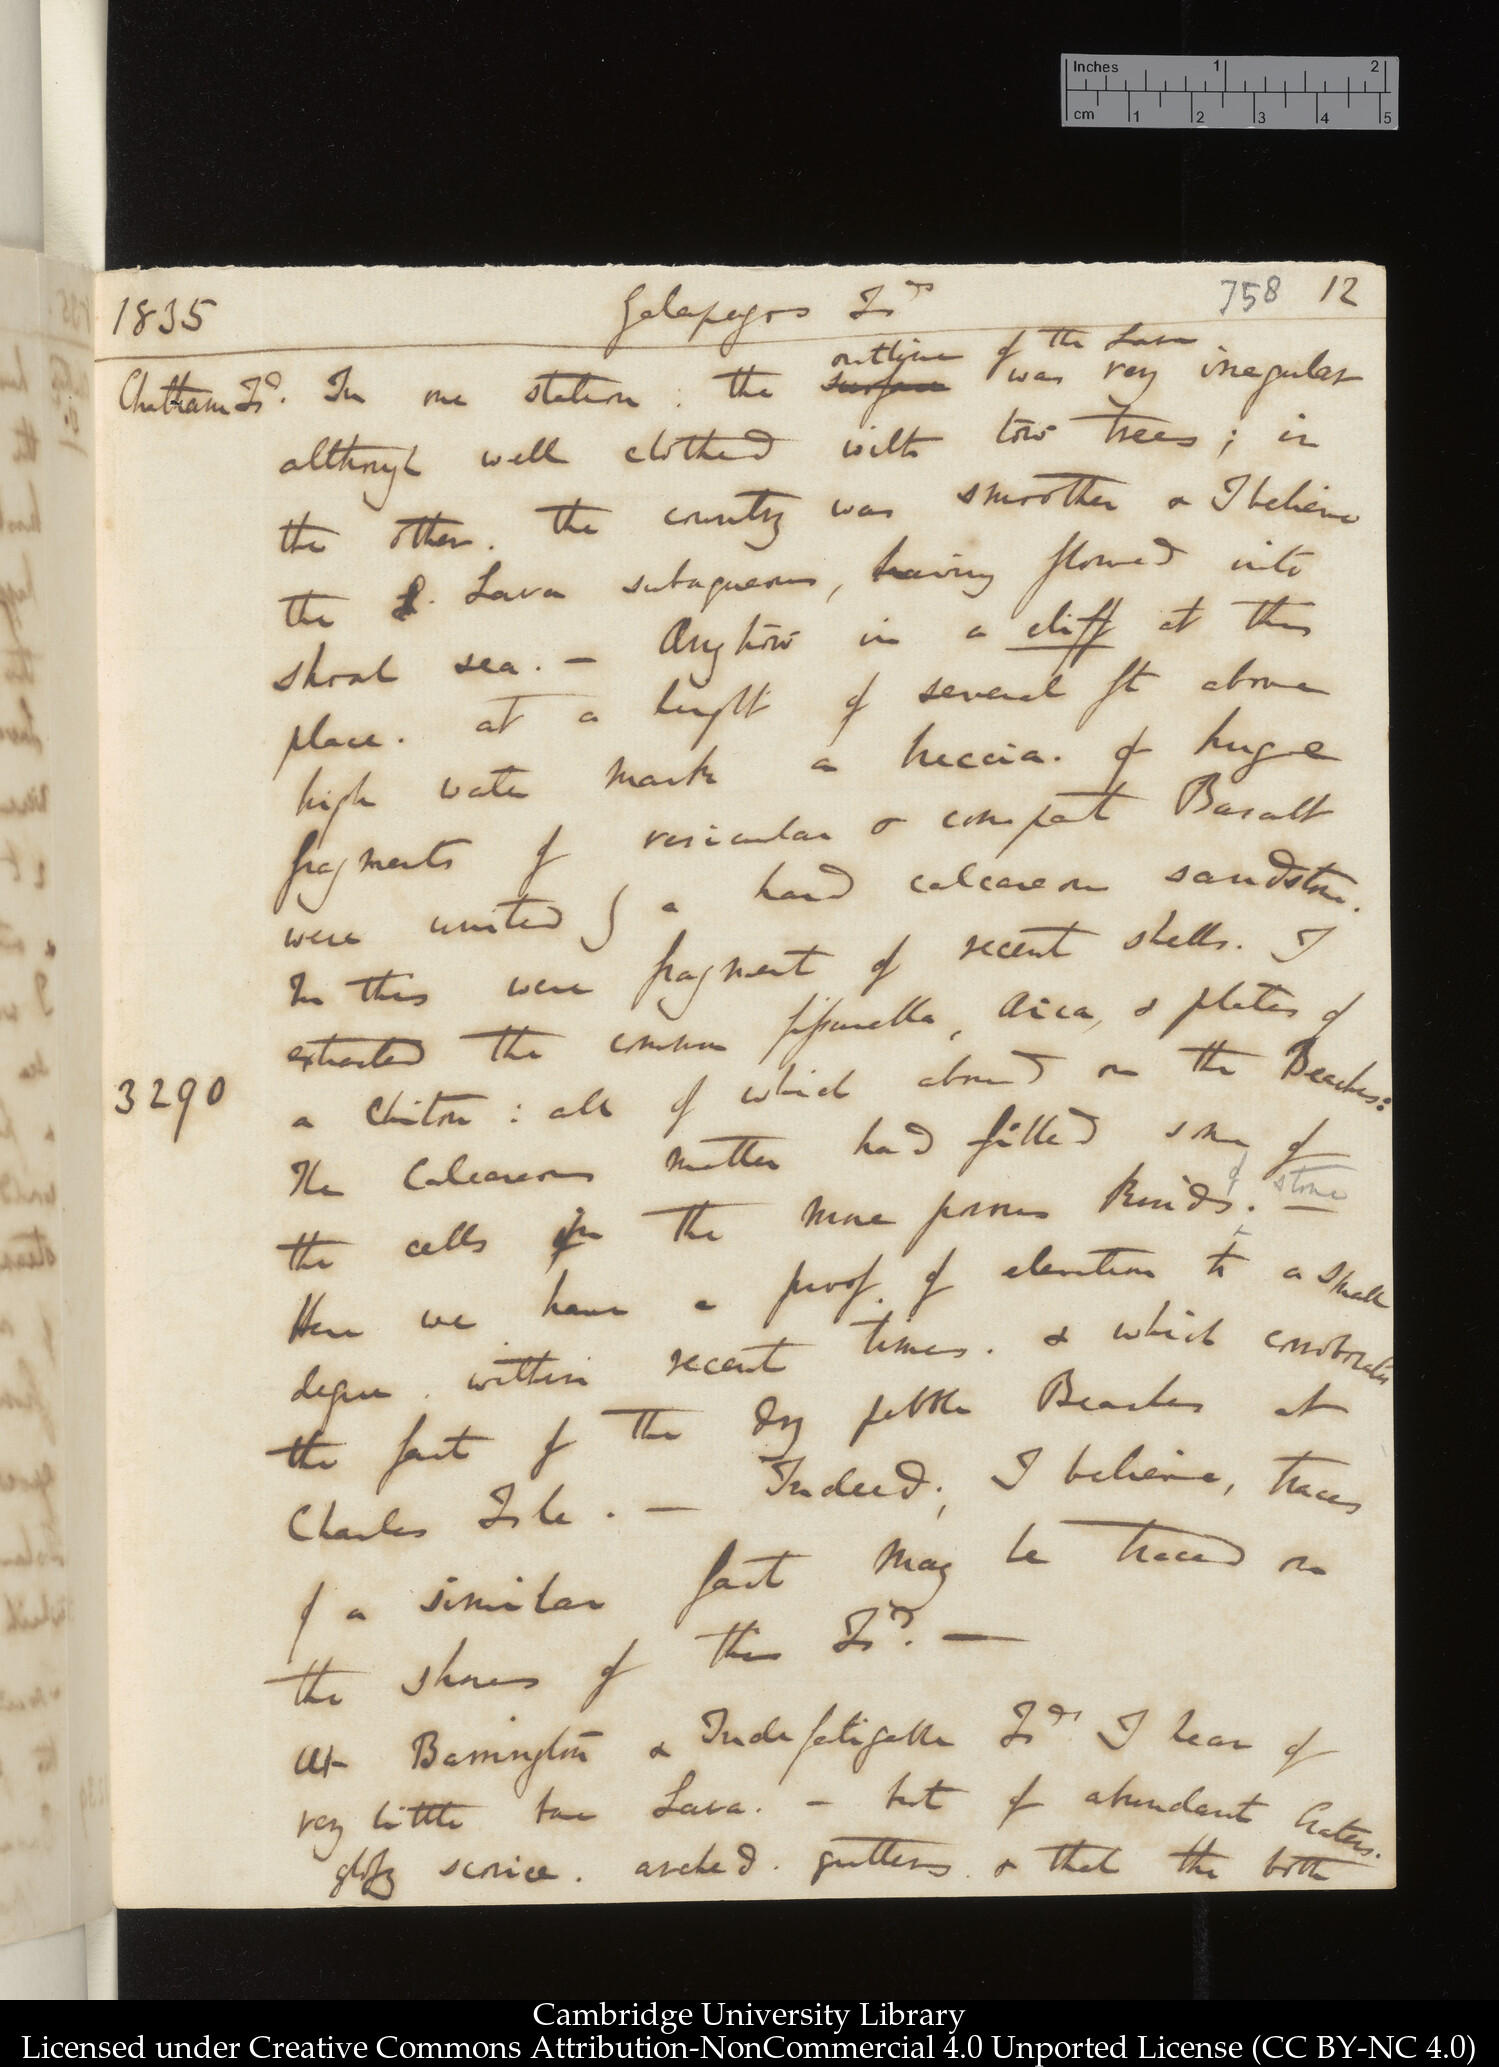 Inches 1 2
cm 1 2 3 4 5
1835 Galapagos Is^ds 758 12
outline of the Lava
Chatham Is^d. In one station: the surface was very irregular
although well clothed with low trees; in
the other. the country was smoother & I believe
the Lava subaqueous, having flowed into
shoal sea. — Anyhow in a cliff at this
place. at a height of several ft above
high water mark a breccia. of huge
fragments of vesicular & compact Basalt
were united by a hard calcareous sandstone.
In this were fragment of recent shells. I
extracted the common fissurella, Arca, & plates of
3290 a Chiton: all of which abound on the Beaches:
The Calcareous matter had filled some of
the cells in the more porous kinds. of stone —
Here we have a proof of elevation to a small
degree. within recent times. & which corroborates
the fact of the dry pebble Beaches at
Charles Isle. — Indeed; I believe, traces
of a similar fact may be traced on
the shores of this Is^d. —
At Barrington & Indefatigable Is^ds I hear of
very little bare Lava. — but of abundant Craters.
glossy scoriae. arched. gutters. & that the both
Cambridge University Library
Licensed under Creative Commons Attribution-NonCommercial 4.0 Unported License (CC BY-NC 4.0)